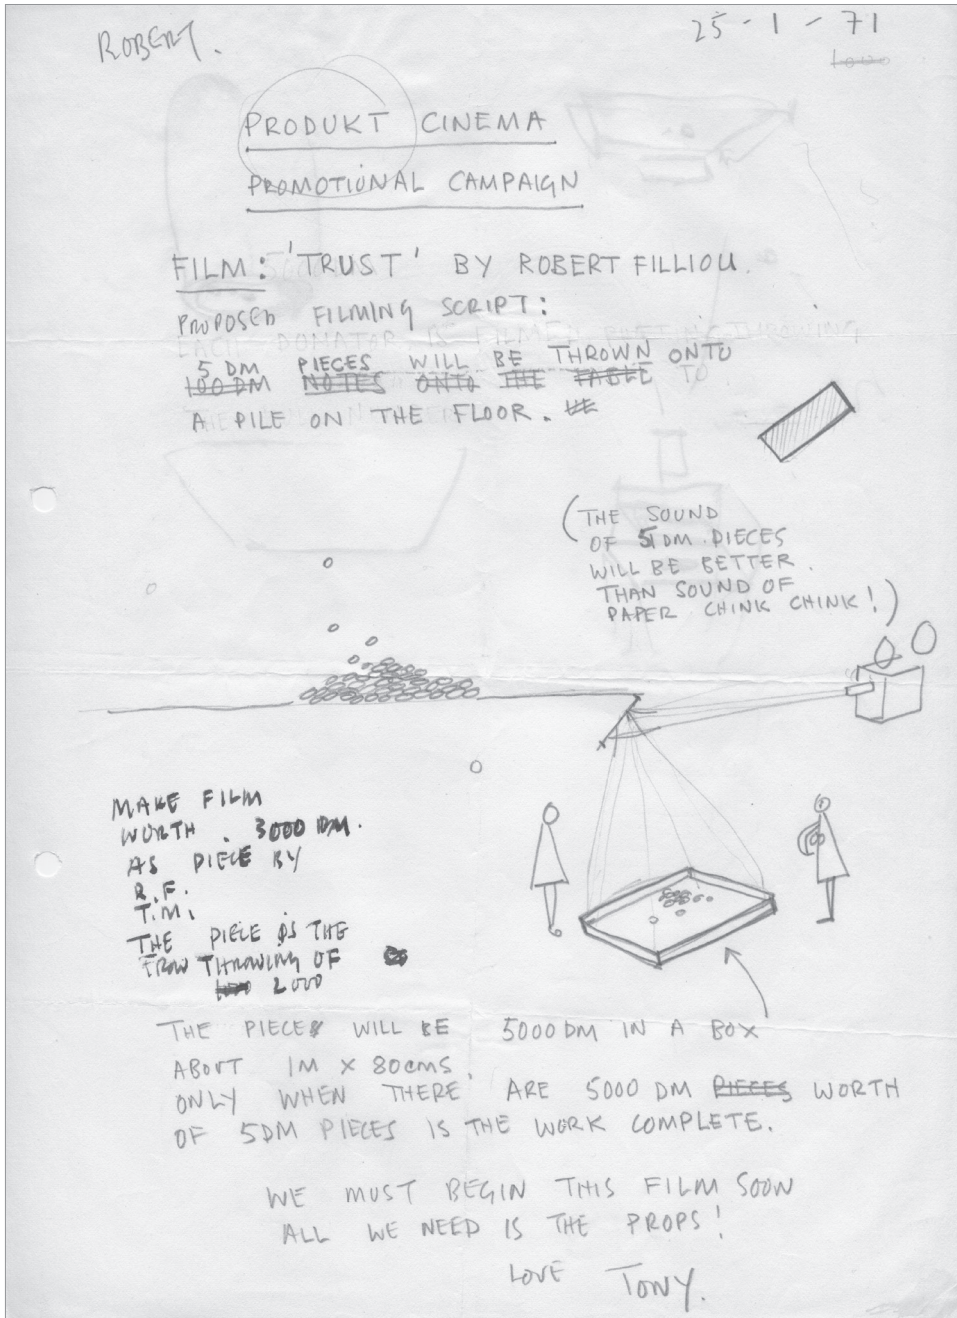 ROBERT.
25-1-71
1000
PRODUKT CINEMA
PROMOTIONAL CAMPAIGN
FILM: 'TRUST' BY ROBERT FILLIOU.
PROPOSED FILMING SCRIPT:
EACH DONATOR IS FILMED PUTTING THROWING
5 DM PIECES WILL BE THROWN ONTO
100 DM NOTES ONTO THE TABLE TO
A PILE ON THE FLOOR.
(THE SOUND
OF 5 DM PIECES
WILL BE BETTER.
THAN SOUND OF
PAPER CHINK CHINK!)
MAKE FILM
WORTH . 3000 DM.
AS PIECE BY
R.F.
T.M.
THE PIECE IS THE
TROW THROWING OF
2000
THE PIECE WILL BE 5000 DM IN A BOX
ABOUT 1M X 80cms.
ONLY WHEN THERE ARE 5000 DM PIECES WORTH
OF 5DM PIECES IS THE WORK COMPLETE.
WE MUST BEGIN THIS FILM SOON
ALL WE NEED IS THE PROPS!
LOVE TONY.